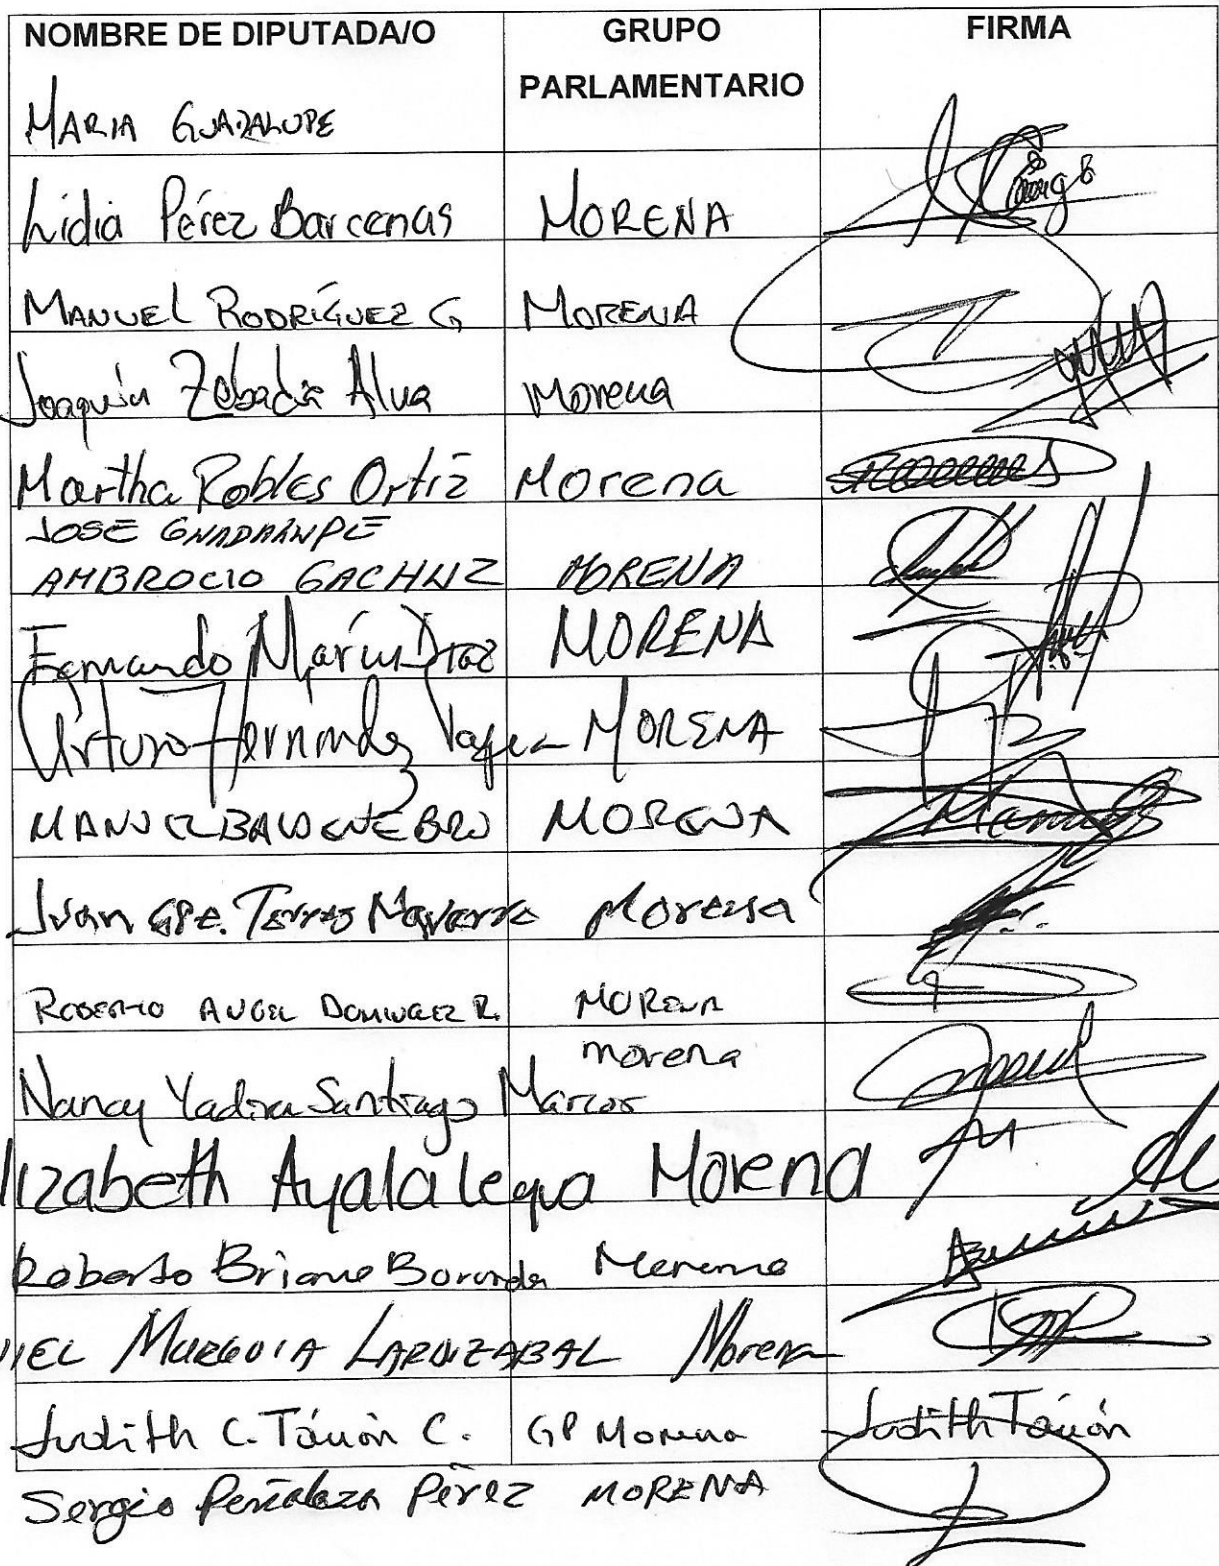 NOMBRE DE DIPUTADA/O GRUPO PARLAMENTARIO FIRMA
MARIA GUADALUPE
Lidia Pérez Barcenas MORENA
MANUEL RODRÍGUEZ G MORENA
Joaquín Zebadúa Alva Morena
Martha Robles Ortiz Morena
JOSE GUADALUPE
AMBROCIO GACHUZ MORENA
Fernando Marín Díaz MORENA
Arturo Hernández MORENA
MANUEL BALDENEBRO MORENA
Juan GPE. Torres Navarro Morena
ROBERTO ANGEL DOMINGUEZ R. MORENA
Nancy Yadira Santiago Marcos morena
lizabeth Ayala Leyva Morena
Roberto Briones Morena
NIEL MURGUIA LARDIZABAL Morena
Judith C. Tánori C. GP Morena Judith Tánori
Sergio Peñaloza Pérez MORENA